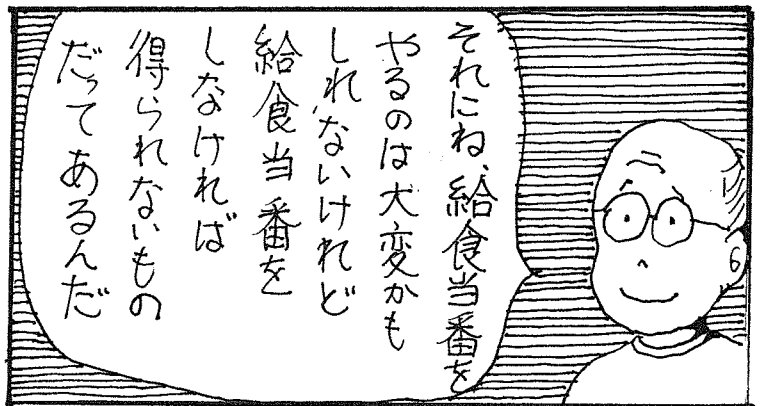 それにね、給食当番を
やるのは大変かも
しれないけれど
給食当番を
しなければ
得られないもの
だってあるんだ